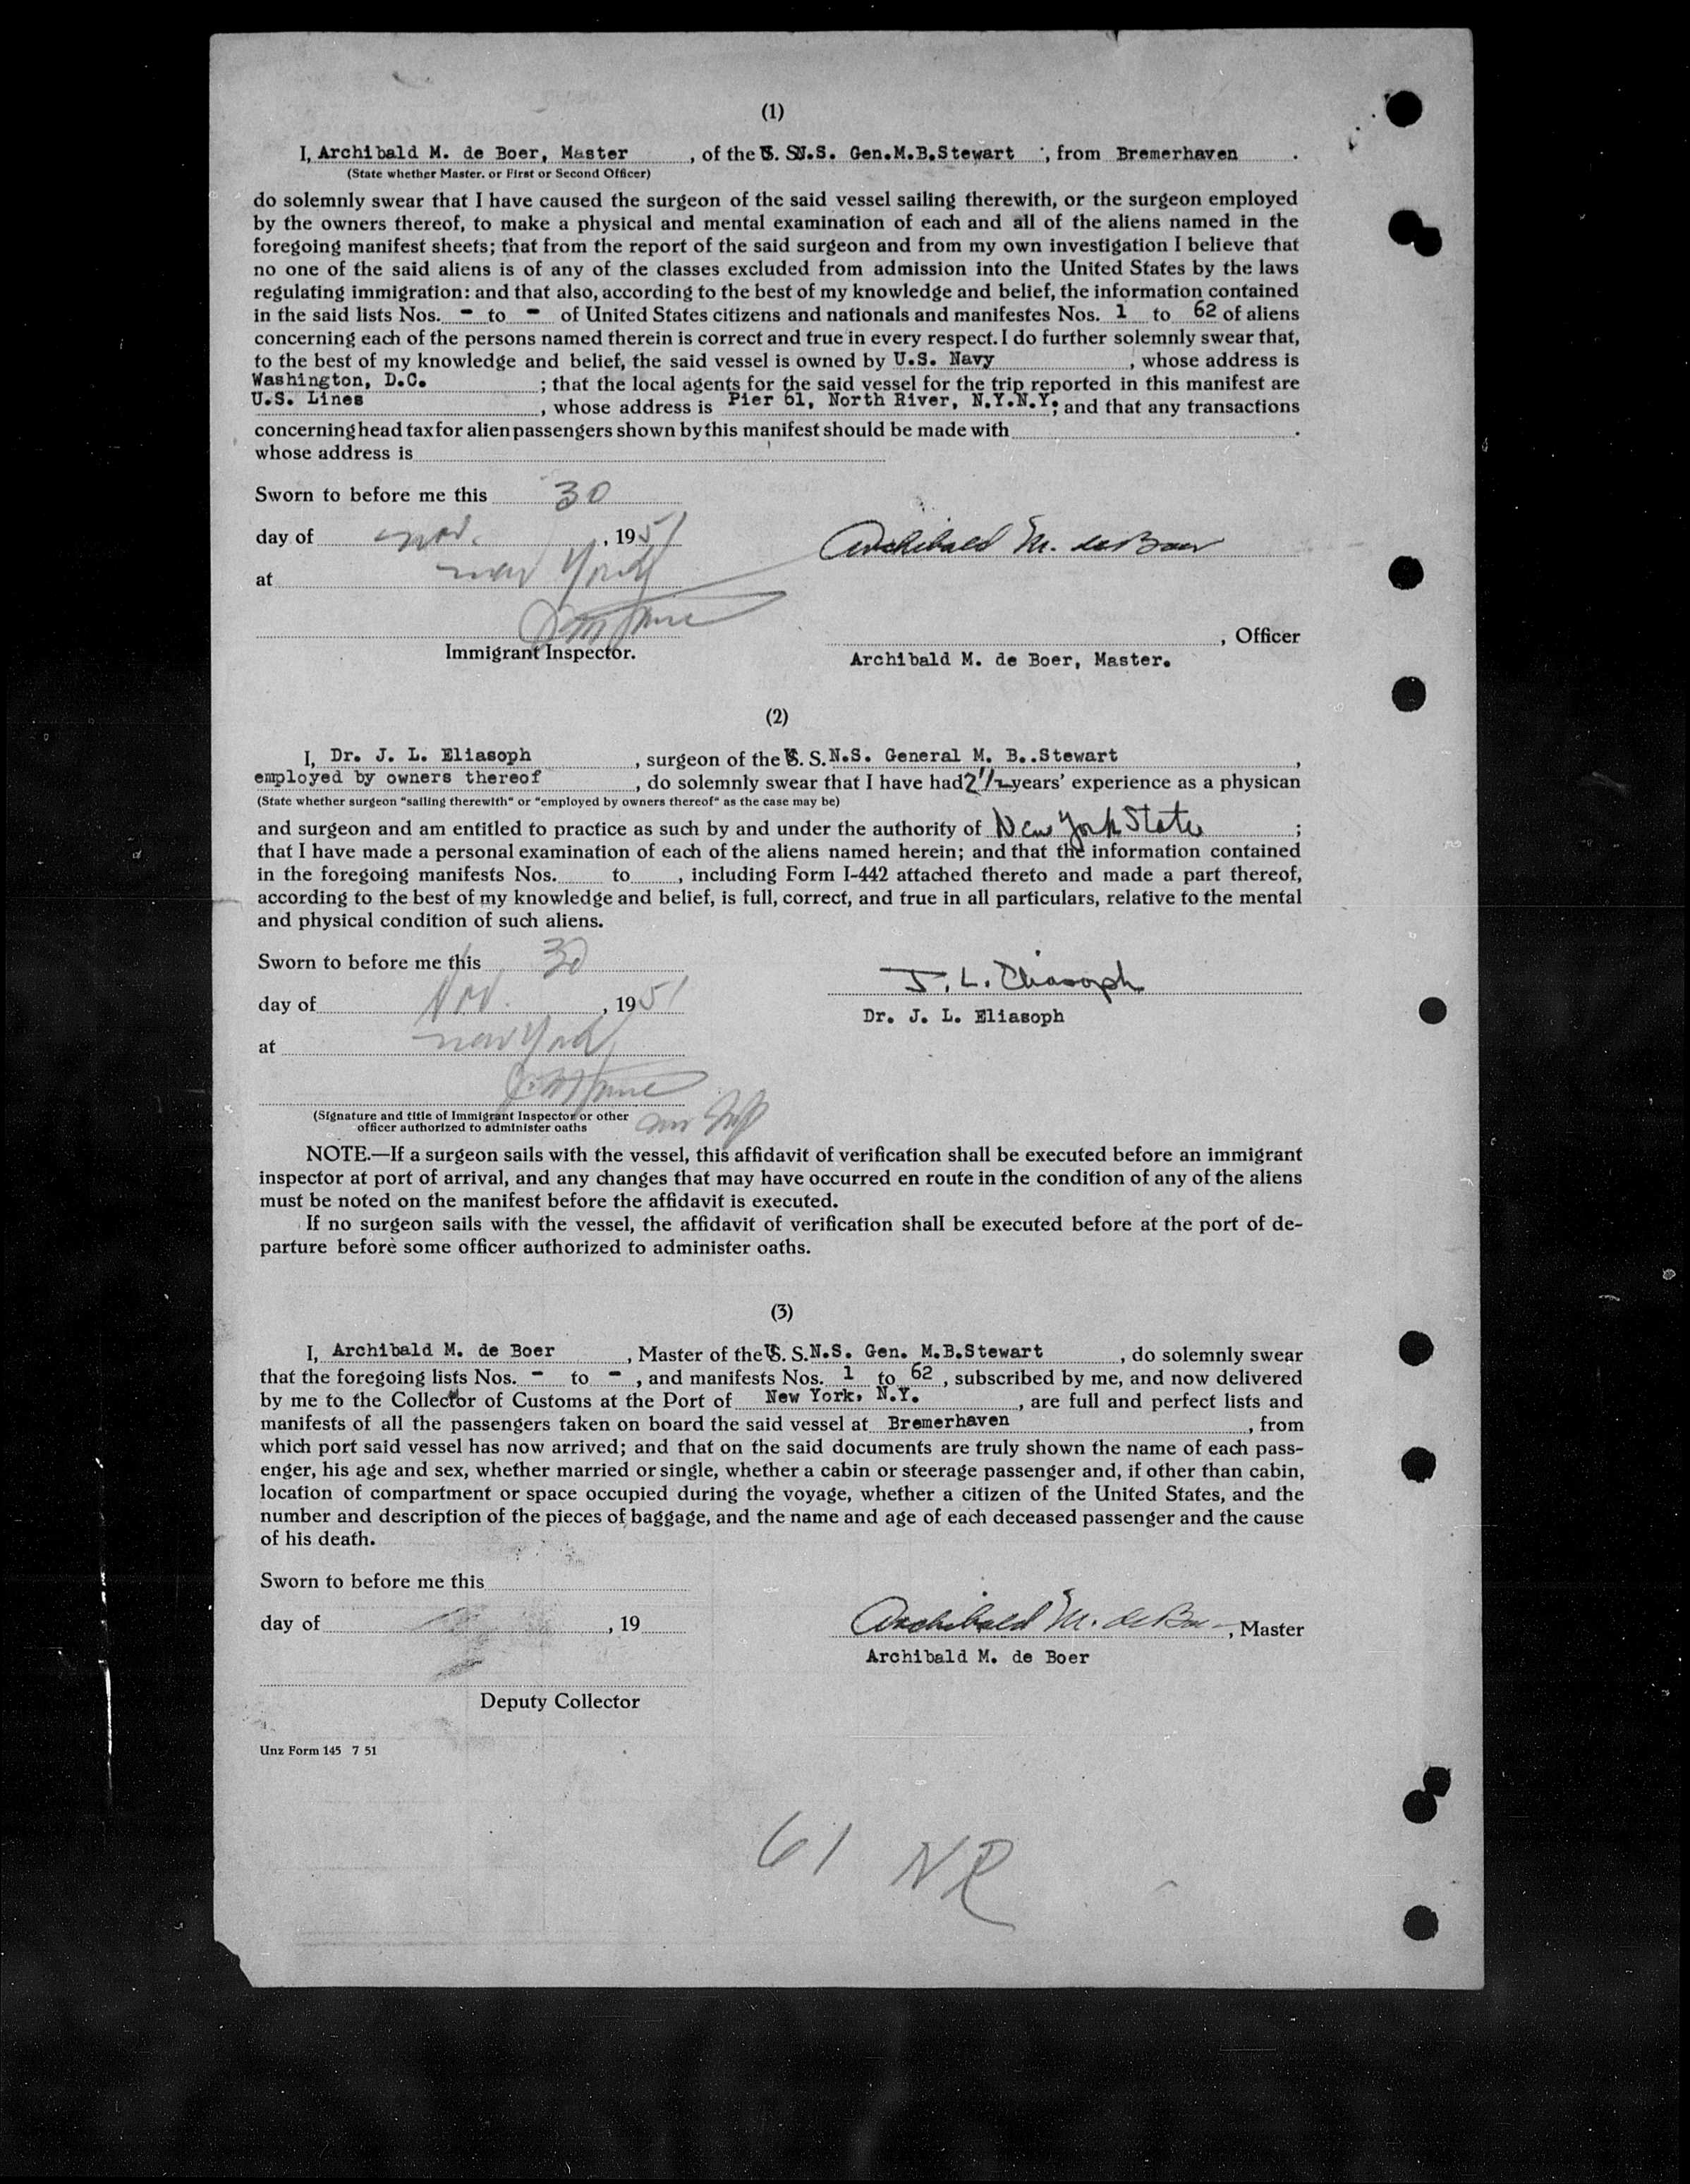 (1)
I, Archibald M. de Boer, Master , of the U. S.N.S. Gen.M.B.Stewart , from Bremerhaven .
(State whether Master. or First or Second Officer)
do solemnly swear that I have caused the surgeon of the said vessel sailing therewith, or the surgeon employed
by the owners thereof, to make a physical and mental examination of each and all of the aliens named in the
foregoing manifest sheets; that from the report of the said surgeon and from my own investigation I believe that
no one of the said aliens is of any of the classes excluded from admission into the United States by the laws
regulating immigration: and that also, according to the best of my knowledge and belief, the information contained
in the said lists Nos. - to - of United States citizens and nationals and manifestes Nos. 1 to 62 of aliens
concerning each of the persons named therein is correct and true in every respect. I do further solemnly swear that,
to the best of my knowledge and belief, the said vessel is owned by U.S. Navy , whose address is
Washington, D.C. ; that the local agents for the said vessel for the trip reported in this manifest are
U.S. Lines , whose address is Pier 61, North River, N.Y.N.Y. ; and that any transactions
concerning head tax for alien passengers shown by this manifest should be made with .
whose address is
Sworn to before me this 30
day of Nov. , 1951
Archibald M. de Boer
at New York
, Officer
Immigrant Inspector.
Archibald M. de Boer, Master.
(2)
I, Dr. J. L. Eliasoph , surgeon of the U. S. N.S. General M. B..Stewart ,
employed by owners thereof , do solemnly swear that I have had 2 1/2 years' experience as a physican
(State whether surgeon "sailing therewith" or "employed by owners thereof" as the case may be)
and surgeon and am entitled to practice as such by and under the authority of New York State ;
that I have made a personal examination of each of the aliens named herein; and that the information contained
in the foregoing manifests Nos. to , including Form I-442 attached thereto and made a part thereof,
according to the best of my knowledge and belief, is full, correct, and true in all particulars, relative to the mental
and physical condition of such aliens.
Sworn to before me this 30
J. L. Eliasoph
day of Nov. , 1951
Dr. J. L. Eliasoph
at New York
(Signature and title of Immigrant Inspector or other
officer authorized to administer oaths
NOTE.—If a surgeon sails with the vessel, this affidavit of verification shall be executed before an immigrant
inspector at port of arrival, and any changes that may have occurred en route in the condition of any of the aliens
must be noted on the manifest before the affidavit is executed.
If no surgeon sails with the vessel, the affidavit of verification shall be executed before at the port of de-
parture before some officer authorized to administer oaths.
(3)
I, Archibald M. de Boer , Master of the U. S. N.S. Gen. M.B.Stewart , do solemnly swear
that the foregoing lists Nos. - to - , and manifests Nos. 1 to 62 , subscribed by me, and now delivered
by me to the Collector of Customs at the Port of New York, N.Y. , are full and perfect lists and
manifests of all the passengers taken on board the said vessel at Bremerhaven , from
which port said vessel has now arrived; and that on the said documents are truly shown the name of each pass-
enger, his age and sex, whether married or single, whether a cabin or steerage passenger and, if other than cabin,
location of compartment or space occupied during the voyage, whether a citizen of the United States, and the
number and description of the pieces of baggage, and the name and age of each deceased passenger and the cause
of his death.
Sworn to before me this
day of , 19
Archibald M. de Boer , Master
Archibald M. de Boer
Deputy Collector
Unz Form 145 7 51
61 NR